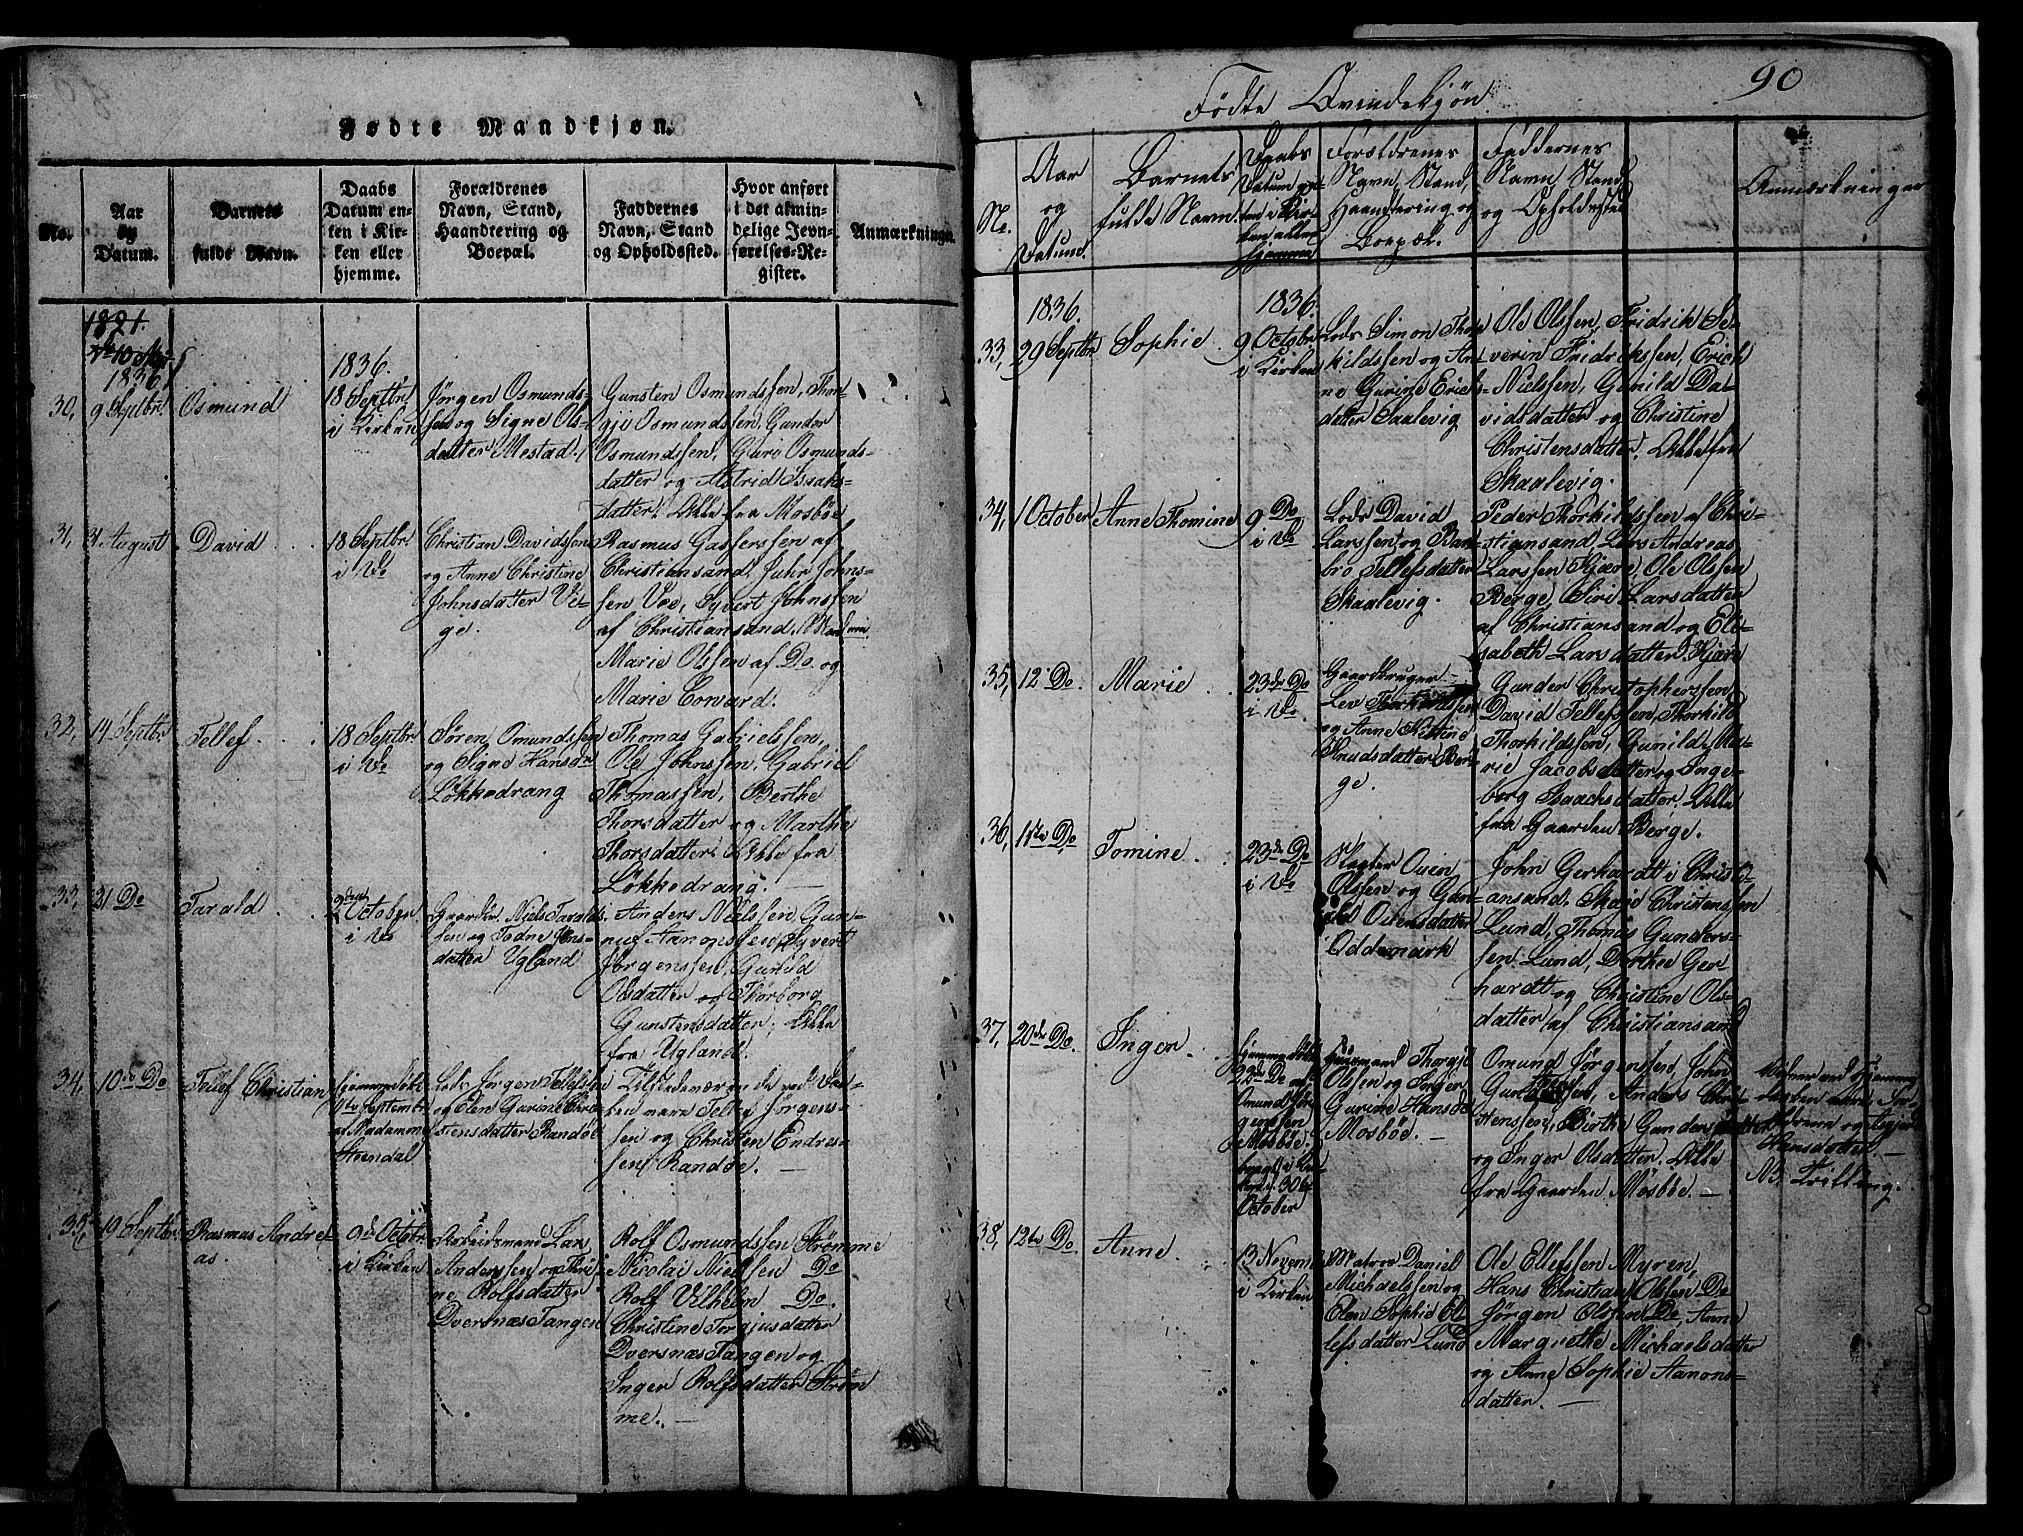 Fødte Mandkjøn.
No.
Aar
og
Datum.
Barnets
fulde Navn.
Daabs
Datum en-
ten i Kir-
ken eller
hjemme.
Forældrenes
Navn, Stand,
Haandtering og
Boepæl.
Faddernes
Navn, Stand
og Opholdssted.
Hvor anført
i det almin-
delige Jevn-
førelses-Re-
gister.
Anmærkninger.
1821.
1836.
30, 9 Septbr.
Osmund
1836.
18 Septbr.
i Kirken
Jørgen Osmunds-
sen og Signe Ols-
datter Mestad.
Gunsten Osmundssen, Thor-
gju Osmundssen, Gunder
Osmundssen, Guro Osmunds-
datter og Astrid Isaaks-
datter. Alle fra Mosbøe
31, 31 August
David
18 Septbr.
i Do
Christian Davidssen
og Anne Christine
Johnsdatter Vi-
ge.
Rasmus Gasserssen af
Christiansand, Juhr Johns-
sen Voe, Syvert Johnssen
af Christiansand,
Marie Olssen af Do. og
Marie Corvard.
32, 14 Septbr.
Tellef
18 Septbr.
i Do
Søren Omundssen
og Signe Hansdr
Løkkedrang
Thomas Gabrielssen,
Ole Johnssen, Gabriel
Thomassen, Berthe
Thorsdatter og Marthe
Thorsdatter. Alle fra
Løkkedrang.
33, 21 Do
Tarald
2den October
i Do
Gaardbr. Niels Taralds-
sen og Todne Jens-
datter Ugland
Anders Nielssen, Gun-
nuf Aanonssen, Syvert
Jørgenssen, Gunild
Olsdatter og Thorborg
Gunstensdatter, Alle
fra Ugland.
34, 10de Do
Tellef Christian
hjemmedøbt
Septembr.
af Madamme
Steendal
Lods Jørgen Tellefssen
og Elen Gurine Chri-
stensdatter Randøe
Tilstedeværende ved Daa-
ben vare Tellef Jørgens-
sen og Christen Endres-
sen Randøe.
35, 19 Septbr.
Rasmus Andre-
as.
9de Octobr
i Kirken
Arbeidsmand Lars
Anderssen og Thri-
ne Rolfsdatter
Dversnæs Tangen
Rolf Osmundssen Strømme
Nicolai Nielssen Do
Rolf Vilhelm Do.
Christine Torgjusdatter
Dversnæs Tangen og
Inger Rolfsdatter Strøm
me.
90
Fødte Qvindekjøn
No.
Aar
og
Datum.
Barnets
fulde Navn.
Daabs
Datum en-
ten i Kir-
ken eller
hjemme
Forældrenes
Navn, Stand,
Haandtering og
Boepæl.
Faddernes
Navn, Stand,
og Opholdssted
Anmærkninger
1836.
33, 29 Septbr
Sophie
1836.
9 Octobr
i Kirken
Lods Simon Thor-
kildssen og An-
ne Gurine Erichs-
datter Skaalevig
Ole Olssen, Fridrik Se-
verin Fridrikssen, Erich
Nielssen, Gunild Da-
vidsdatter og Christine
Christensdatter. Alle fra
Skaalevig.
34, 1 October
Anne Thomine
9 Do
i Do
Lods David
Larssen og Bar-
bro Tellefsdatter
Skaalevig.
Peder Thorkildssen af Chri-
stiansand, Lars Andreas
Larssen Kjære, Ole Olssen
Berge, Siri Larsdatter
af Christiansand og Eli-
sabeth Larsdatter Kjære
35, 12 Do.
Marie
23de Do
i Do.
Gaardbruger
Lev Thorkildssen
og Anne Kirstine
Knudsdatter Ber-
ge.
Gunder Christopherssen,
David Tellefssen, Thorkild
Thorkildssen, Gunild Ma-
rie Jacobsdatter og Inge-
borg Isaachsdatter. Alle
fra Gaarden Berge.
36, 11te Do.
Tomine
23de Do
i Do.
Slagter Ouen
Olssen og Gun-
ild Ouensdatter
Oddemark
John Gerhardt i Christi-
ansand, Christenssen
Lund, Thomas Gunders-
sen Lund, Dorthe Ger-
hardt og Christine Ols-
datter af Christiansand
37, 20de Do.
Inger
hjemmedøbt
22de Do af
Omund Jør-
genssen
Mosbøe.
bragt i Kir-
ken d. 30te
October
Huusmand Thorgju
Olssen og Inger
Gurine Hansdr
Mosbøe.
Omund Jørgenssen, John
Anders Chri-
stenssen, Birthe Gunders-
og Inger Olsdatter. Alle
fra Gaarden Mosbøe.
Vidner ved Hjemme-
daaben vare For-
ældrene og
Hansdatter.
NB. Tvilling.
38, 12te Do.
Anne
13 Novembr
i Kirken
Matros Daniel
Michaelssen og
Elen Sophie El-
lefsdatter Lund
Ole Ellefssen Myren,
Hans Christian Olssen Do
Jørgen Olssen Do, Anne
Margrethe Michaelsdatter
og Anne Sophie Aanons-
datter.